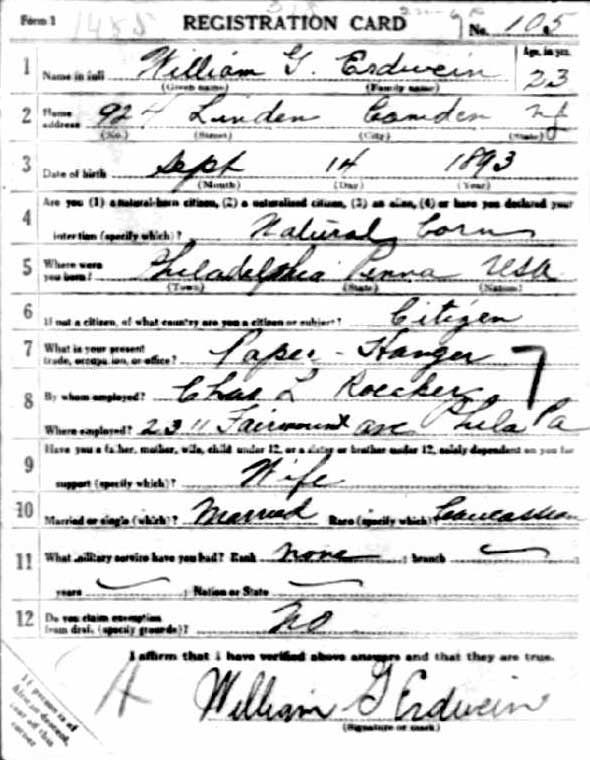 Form 1 1485 REGISTRATION CARD No. 105
1 Name in full William G. Erdwein Age, in yrs. 23
(Given name) (Family name)
2 Home address 924 Linden Camden NJ
(No.) (Street) (City) (State)
3 Date of birth Sept 14 1893
(Month) (Day) (Year)
Are you (1) a natural-born citizen, (2) a naturalized citizen, (3) an alien, (4) or have you declared your
4 intention (specify which)? Natural born
5 Where were you born? Philadelphia Penna USA
(Town) (State) (Nation)
6 If not a citizen, of what country are you a citizen or subject? Citizen
7 What is your present trade, occupation, or office? Paper-Hanger
8 By whom employed? Chas L Roecker
Where employed? 2311 Fairmount ave Phila Pa
Have you a father, mother, wife, child under 12, or a sister or brother under 12, solely dependent on you for
9 support (specify which)? Wife
10 Married or single (which)? Married Race (specify which)? Caucassian
11 What military service have you had? Rank None ; branch ;
years ; Nation or State
12 Do you claim exemption from draft (specify grounds)? No
I affirm that I have verified above answers and that they are true.
William G Erdwein
(Signature or mark)
If person is of
African descent,
tear off this
corner